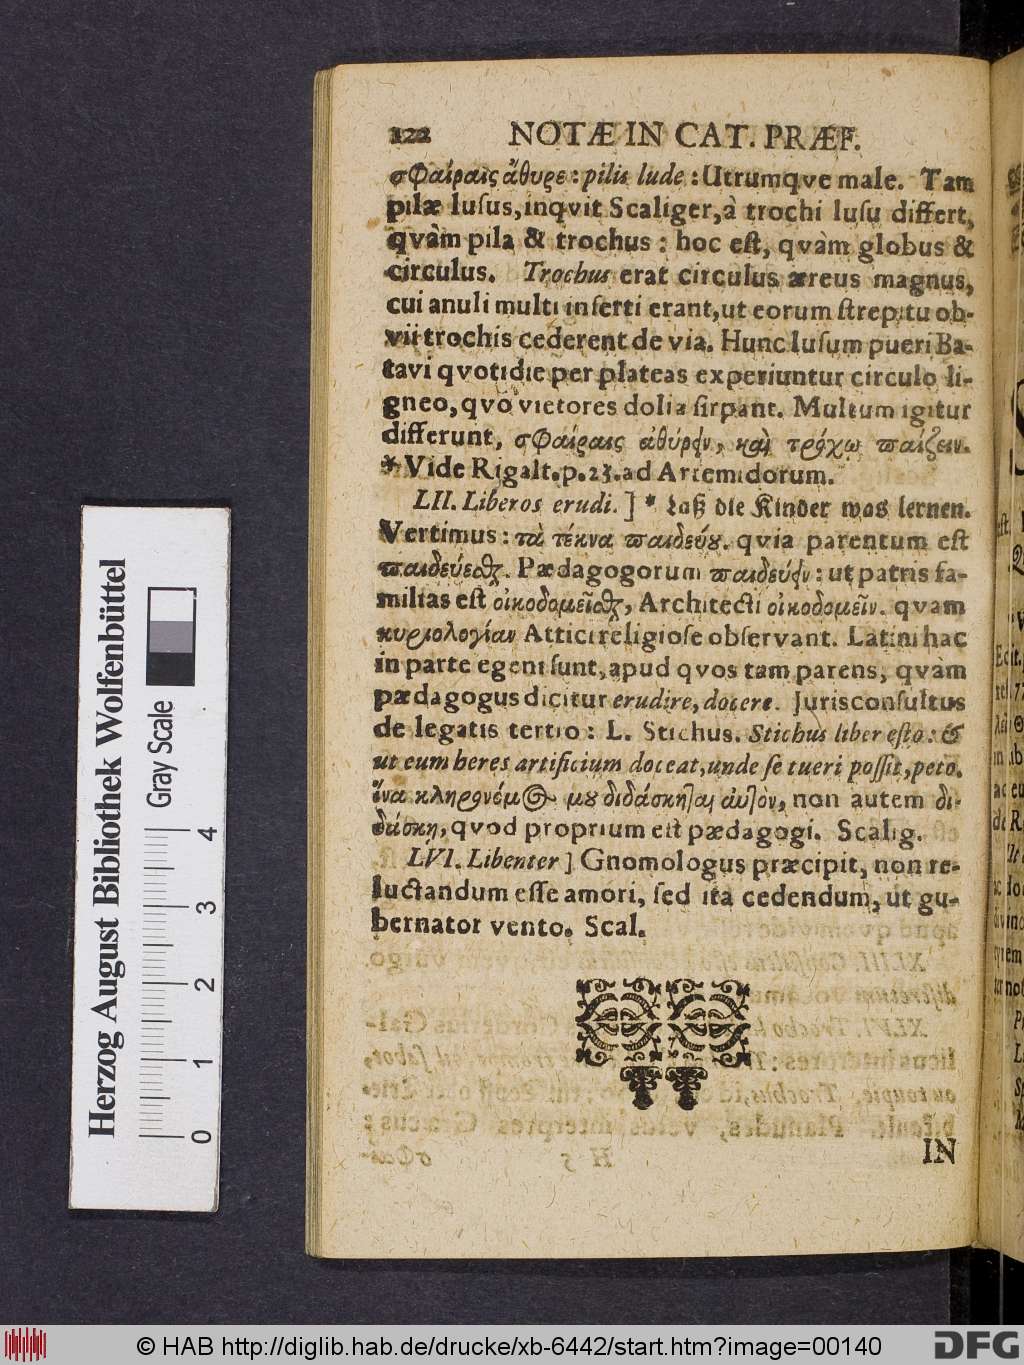 122 NOTÆ IN CAT. PRÆF.
σφαίραις ἄθυρε : pilis lude : Utrumqve male. Tam
pilæ luſus, inqvit Scaliger, à trochi luſu differt,
qvàm pila & trochus : hoc eſt, qvàm globus &
circulus. Trochus erat circulus æreus magnus,
cui anuli multi inſerti erant, ut eorum ſtrepitu ob-
vii trochis cederent de via. Hunc luſum pueri Ba-
tavi qvotidie per plateas experiuntur circulo li-
gneo, qvo vietores dolia ſirpant. Multum igitur
differunt, σφαίραις ἀθύρειν, καὶ τρόχῳ παίζειν.
* Vide Rigalt. p. 23. ad Artemidorum.
LII. Liberos erudi. ] * Laß die Kinder was lernen.
Vertimus : τὰ τέκνα παιδεύου. qvia parentum eſt
παιδεύεσθαι. Pædagogorum παιδεύειν : ut patris fa-
milias eſt οἰκοδομεῖσθαι, Architecti οἰκοδομεῖν. qvam
κυριολογίαν Attici religioſe obſervant. Latini hac
in parte egeni ſunt, apud qvos tam parens, qvàm
pædagogus dicitur erudire, docere. Jurisconſultus
de legatis tertio : L. Stichus. Stichus liber eſto : &
ut eum heres artificium doceat, unde ſe tueri poſſit, peto.
ἵνα κληρονόμος μου διδάσκηται αὐτὸν, non autem δι-
δάσκῃ, qvod proprium eſt pædagogi. Scalig.
LVI. Libenter ] Gnomologus præcipit, non re-
luctandum eſſe amori, ſed ita cedendum, ut gu-
bernator vento. Scal.
IN
Herzog August Bibliothek Wolfenbüttel
Gray Scale
0 1 2 3 4
© HAB http://diglib.hab.de/drucke/xb-6442/start.htm?image=00140
DFG